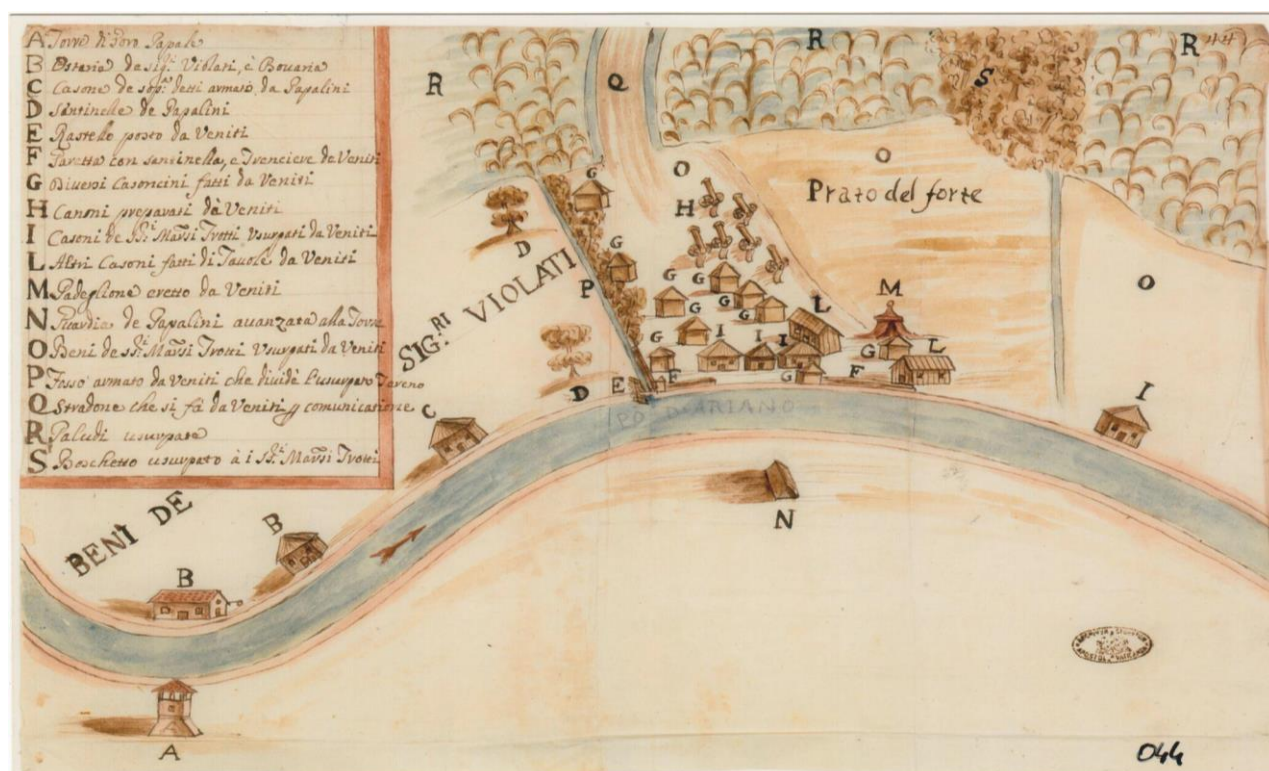 A Torre di Goro Papale
B Ostaria de Sig.ri Violati, e Bovaria
C Casone de sop.ti detti armato da Papalini
D Sentinelle de Papalini
E Rastello posto da Veniti
F Garetta con sentinella, e Trenciere de Veniti
G Diversi Casoncini fatti da Veniti
H Canoni preparati da Veniti
I Casoni de SS.ri Marsi Trotti Usurpati da Veniti
L Altri Casoni fatti di Tavole da Veniti
M Padeglione eretto da Veniti
N Guardia de Papalini avanzata alla Torre
O Beni de SS.ri Marsi Trotti Usurpati da Veniti
P Fosso armato da Veniti che divide l'usurpato Tereno
Q Stradone che si fà da Veniti p comunicatione
R Paludi usurpate
S Boschetto usurpato à i SS.ri Marsi Trotti
R Q R S R 44
G O O
H Prato del forte
D G O
BENI DE SIG.RI VIOLATI
P G G G L M
G G G I I I G L
E F G F
D I
C
PÒ D'ARIANO
N
B
B
A
044